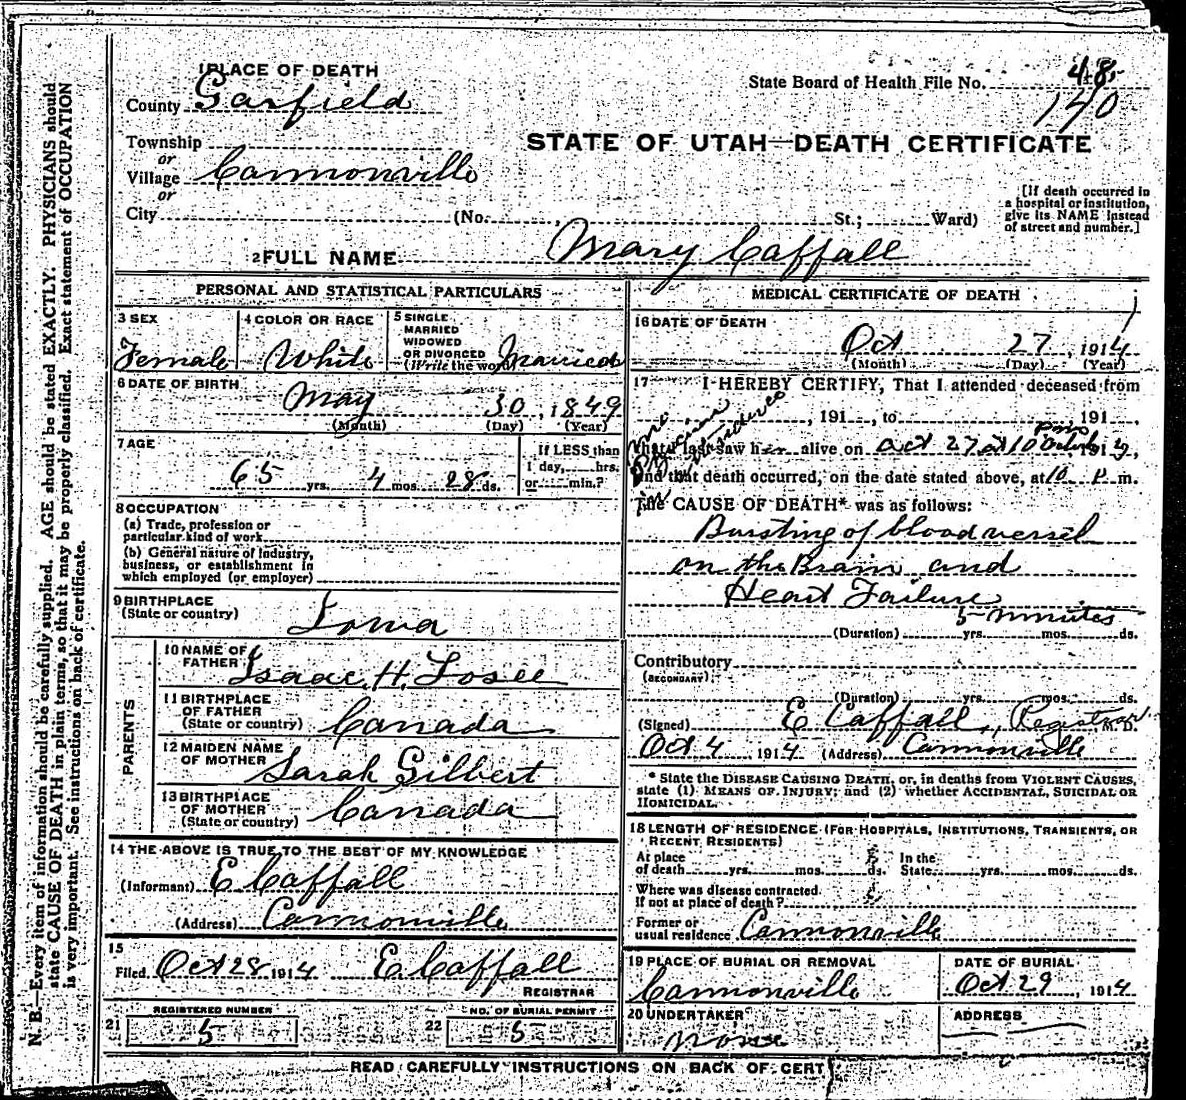 1 PLACE OF DEATH
State Board of Health File No. 48
140
County Garfield
STATE OF UTAH—DEATH CERTIFICATE
Township
or
Village Cannonville
or
City (No. , St.; Ward)
[If death occurred in
a hospital or institution,
give its NAME instead
of street and number.]
2 FULL NAME Mary Caffall
PERSONAL AND STATISTICAL PARTICULARS
3 SEX
Female
4 COLOR OR RACE
White
5 SINGLE
MARRIED
WIDOWED
OR DIVORCED
(Write the word) Married
6 DATE OF BIRTH
May 30, 1849
(Month) (Day) (Year)
7 AGE
65 yrs. 4 mos. 28 ds.
If LESS than
1 day, hrs.
or min.?
8 OCCUPATION
(a) Trade, profession or
particular kind of work
(b) General nature of industry,
business, or establishment in
which employed (or employer)
9 BIRTHPLACE
(State or country)
Iowa
PARENTS
10 NAME OF
FATHER Isaac H. Losee
11 BIRTHPLACE
OF FATHER
(State or country) Canada
12 MAIDEN NAME
OF MOTHER Sarah Gilbert
13 BIRTHPLACE
OF MOTHER
(State or country) Canada
14 THE ABOVE IS TRUE TO THE BEST OF MY KNOWLEDGE
(Informant) E Caffall
(Address) Cannonville
15
Filed Oct 28 1914 E Caffall
REGISTRAR
21 REGISTERED NUMBER
5
22 NO. OF BURIAL PERMIT
5
MEDICAL CERTIFICATE OF DEATH
16 DATE OF DEATH
Oct 27, 1914
(Month) (Day) (Year)
17 I HEREBY CERTIFY, That I attended deceased from
, 191 , to 191 ,
that I last saw her alive on Oct 27 at 10 pm 191 ,
and that death occurred, on the date stated above, at 10 P m.
The CAUSE OF DEATH* was as follows:
Bursting of blood vessel
on the Brain and
Heart Failure
5 minutes
(Duration) yrs. mos. ds.
Contributory
(SECONDARY)
(Duration) yrs. mos. ds.
(Signed) E Caffall, Registrar M. D.
Oct 4 1914 (Address) Cannonville
* State the DISEASE CAUSING DEATH, or, in deaths from VIOLENT CAUSES,
state (1) MEANS OF INJURY; and (2) whether ACCIDENTAL, SUICIDAL OR
HOMICIDAL.
18 LENGTH OF RESIDENCE (FOR HOSPITALS, INSTITUTIONS, TRANSIENTS, OR
RECENT RESIDENTS)
At place
of death yrs. mos. ds.
In the
State yrs. mos. ds.
Where was disease contracted
if not at place of death?
Former or
usual residence Cannonville
19 PLACE OF BURIAL OR REMOVAL
Cannonville
DATE OF BURIAL
Oct 29, 1914
20 UNDERTAKER
None
ADDRESS
READ CAREFULLY INSTRUCTIONS ON BACK OF CERT
N. B.—Every item of information should be carefully supplied. AGE should be stated EXACTLY. PHYSICIANS should
state CAUSE OF DEATH in plain terms, so that it may be properly classified. Exact statement of OCCUPATION
is very important. See instructions on back of certificate.